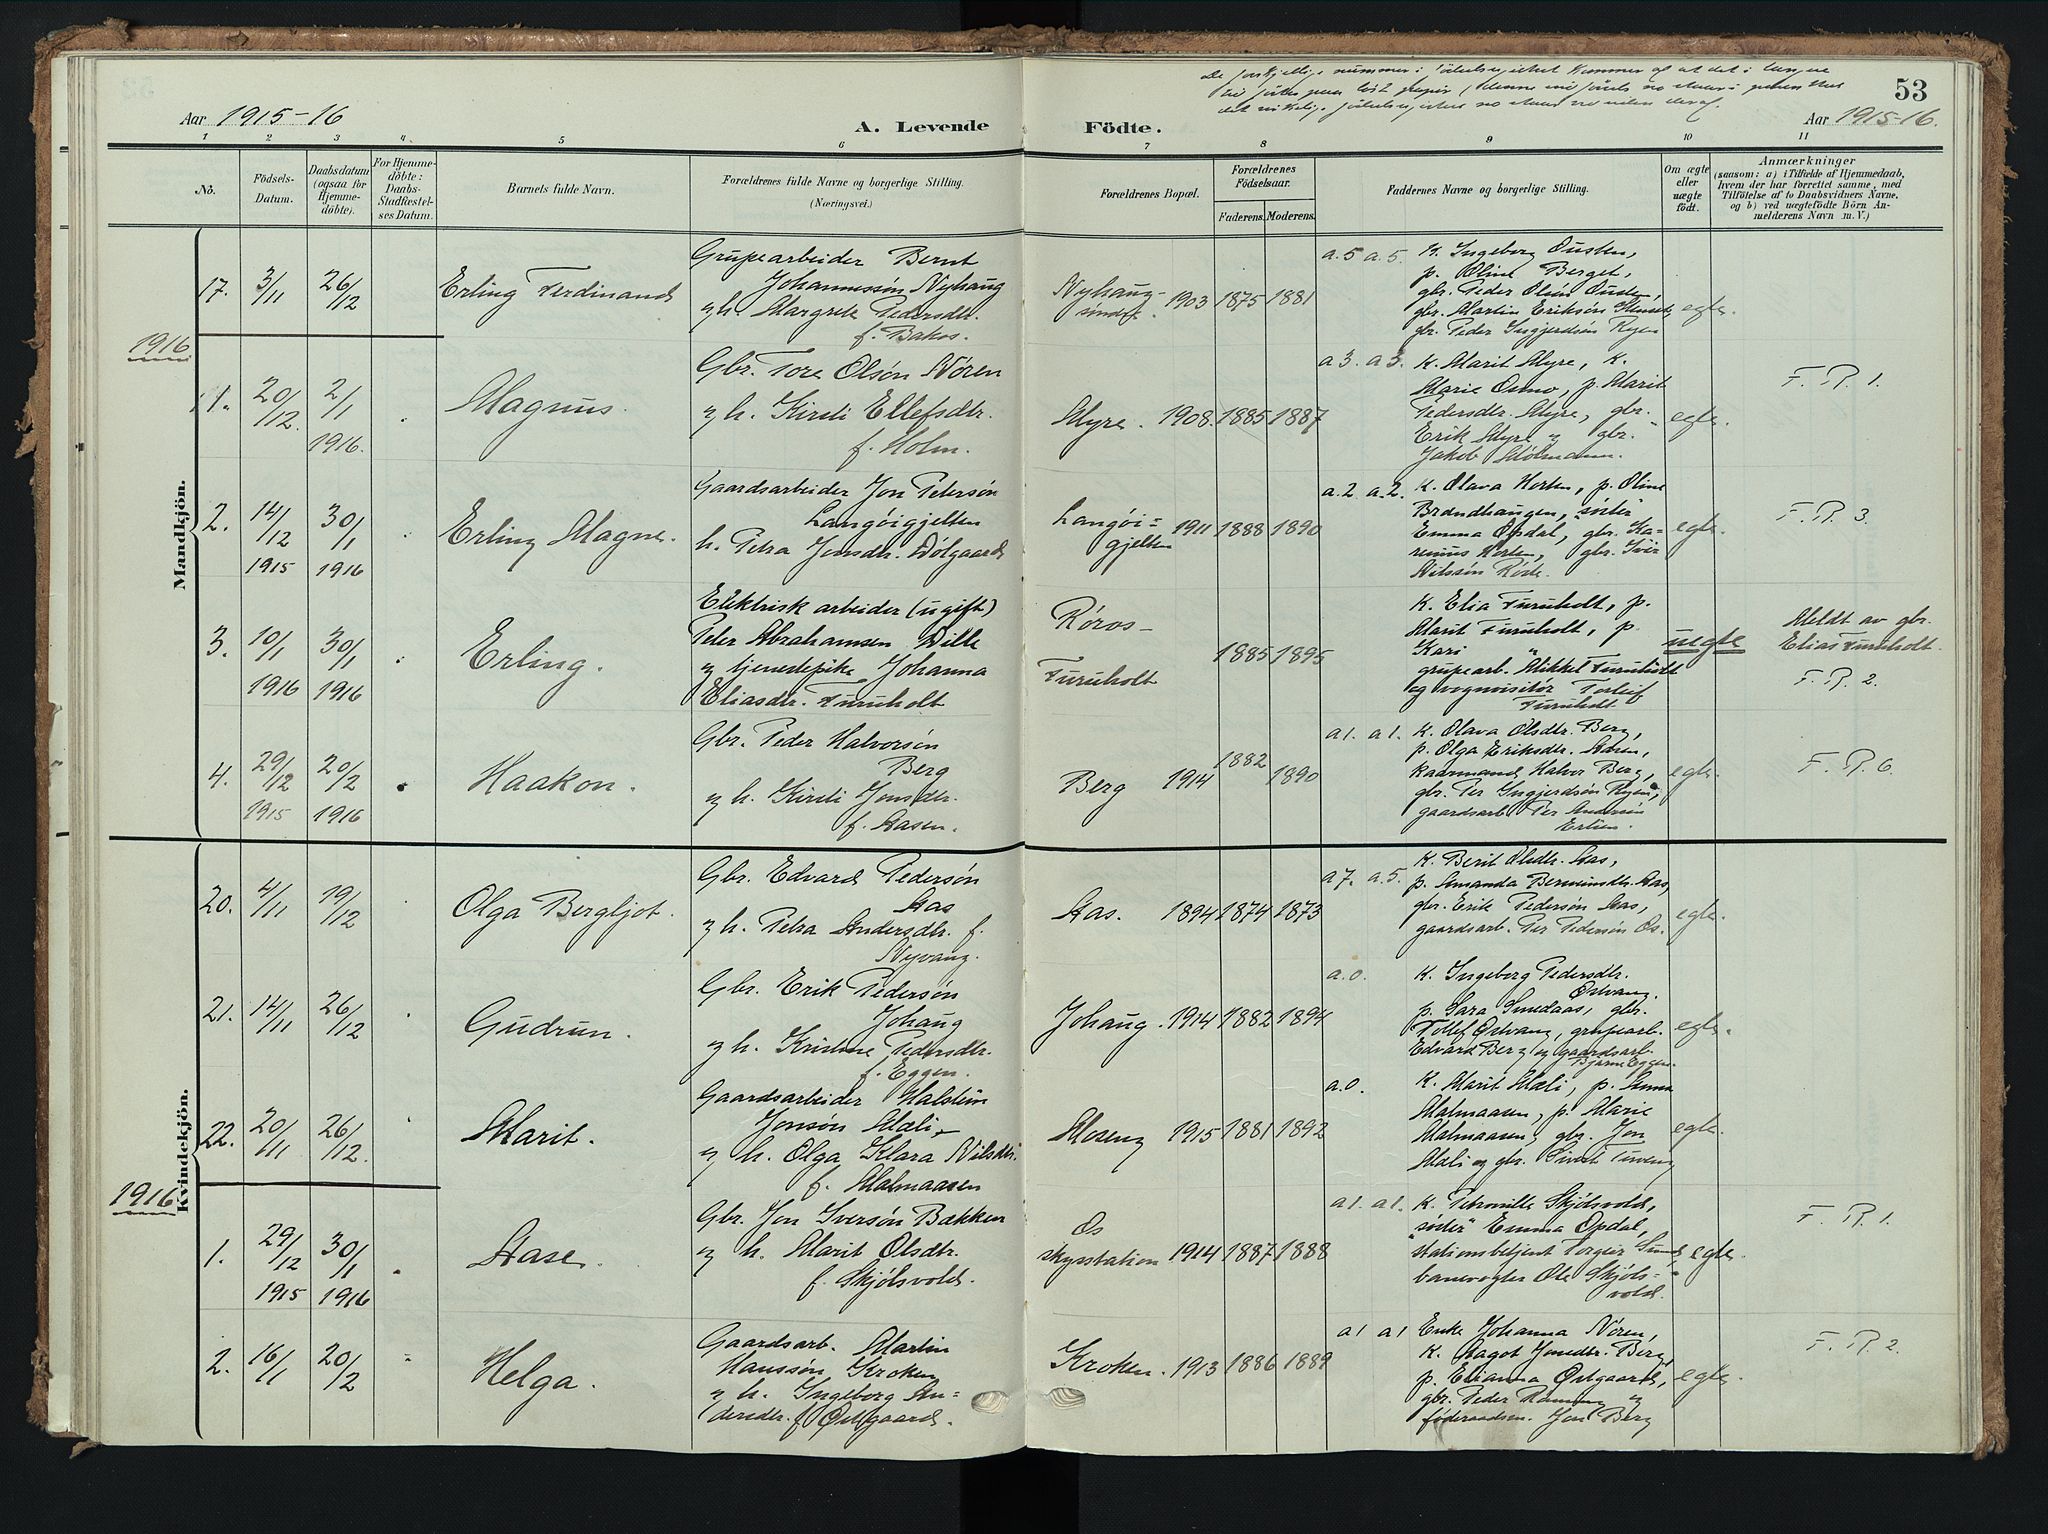 53
Aar 1915-16
A. Levende Födte.
Aar 1915-16.
1 2 3 4 5 6 7 8 9 10 11
No.
Födsels-
Datum.
Daabsdatum
(ogsaa for
Hjemme-
döbte).
For Hjemme-
döbte:
Daabs-
Stadfæstel-
ses Datum.
Barnets fulde Navn.
Forældrenes fulde Navne og borgerlige Stilling.
(Næringsvei.)
Forældrenes Bopæl.
Forældrenes
Födselsaar.
Faderens. Moderens.
Faddernes Navne og borgerlige Stilling.
Om ægte
eller
uægte
født.
Anmærkninger
(saasom: a) i Tilfælde af Hjemmedaab,
hvem der har forrettet samme, med
Tilföielse af to Daabsvidners Navne,
og b) ved uægtefödte Börn An-
melderens Navn m. V.)
Mandkjön.
17. 3/11 26/12
Erling Ferdinand
Grupearbeider Bernt
Johannessøn Nyhaug
og h. Margrete Pedersdtr.
f. Bakos.
Nyhaug
1903 1875 1881
a.5 a.5.
K. Ingeborg Ousten,
p. Oline Berget,
gbr. Peder Olsøn Ousten,
gbr. Martin Eriksøn
gbr. Peder Ingjerdsøn Ryen
egte.
1916
1. 20/12. 2/1
1916.
Magnus.
Gbr. Tore Olsøn Nören
og h. Kirsti Ellefsdtr.
f. Holm.
Myre. 1908. 1885 1887
a3. a3.
K. Marit Myre, K.
Marie Osmo, p. Marit
Pedersdtr. Myre, gbr.
Erik Myre og gbr.
Jakob
egte.
F. R. 1.
2. 14/12 30/1
1915 1916
Erling Magne.
Gaardsarbeider Jon Petersøn
Langøigjelten
h. Petra Jonsdtr. Dølgaard
Langøi=
gjelten
1911 1888 1890
a.2 a.2.
K. Olava Horten, p. Oline
Brandhaugen, "söster"
Emma Opdal, gbr. Ka-
renius Horten, gbr. Iver
Nilssøn Röste.
egte.
F. R. 3.
3. 10/1 30/1
1916 1916
Erling.
Elektrisk arbeider (ugift)
Peter Abrahamsen Dille
og tjenestepike Johanna
Eliasdtr. Furuholt
Röros-
Furuholt
1885 1895
K. Elia Furuholt, p.
Marit Furuholt, p.
Kari "
grupearb. Mikkel Furuholt
og vognvisitör Torleif
Furuholt
uegte
Meldt av gbr.
Elias Furuholt.
F. R. 2.
4. 29/12 20/2
1915 1916
Haakon.
Gbr. Peder Halvorsøn
Berg
og h. Kirsti Jonsdtr.
f. Aasen.
Berg 1914 1882 1890
a1. a1.
K. Olava Olsdtr. Berg,
p. Olga Eriksdtr. Nören,
kaarmand Halvor Berg,
gbr. Per Ingjerdsøn Ryen,
gaardsarb. Per Andersøn
Erlien.
egte.
F. R. 6.
Kvindekjön.
20. 4/11 19/12
Olga Bergljot.
Gbr. Edvard Pedersøn
Aas
og h. Petra Andersdtr. f.
Nyvang.
Aas. 1894 1874 1873
a7. a.5.
K. Berit Olsdtr. Aas,
p. Amanda Aas,
gbr. Erik Pedersøn Aas,
gaardsarb. Per Pedersøn Os.
egte.
21. 14/11 26/12
Gudrun.
Gbr. Erik Pedersøn
Johaug
og h. Kristine Pedersdtr.
f. Eggen.
Johaug. 1914 1882 1894
a.0.
K. Ingeborg Pedersdtr.
Östvang.
p. Sara Smedaas, gbr.
Tollef Östvang, grupearb.
Edvard Berg og gaardsarb.
Bjarne Eggen.
egte.
22. 20/11 26/12.
Marit.
Gaardsarbeider Halstein
Jonsøn Mæli
og h. Olga Klara Nilsdtr.
f. Malmaasen
Moseng 1915 1881 1892
a.0.
K. Marit Mæli, p. Anna
Malmaasen, p. Marie
Malmaasen, gbr. Jon
Mæli og gbr. Sivert Tuveng
egte.
1916
1. 29/12 30/1
1915 1916
Aase.
Gbr. Jon Iversøn Bakken
og h. Marit Olsdtr.
f. Skjölsvold.
Os
skysstation 1914 1887 1888
a1. a1.
K. Petronille Skjölsvold,
"söster" Emma Opdal,
stationsbetjent Torgeir Sund,
banevogter Ole Skjöls=
vold.
egte.
F. R. 1.
2. 16/1 20/2
Helga.
Gaardsarb. Martin
Hanssøn Kroken
og h. Ingeborg An=
dersdtr. f. Østgaard.
Kroken. 1913 1886 1889
a1 a1
Enke Johanna Nören,
K. Aagot Jonsdtr. Berg,
p. Elianna Østgaard,
gbr. Peder Rönning og
föderaadsm. Jon Berg
egte.
F. R. 2.